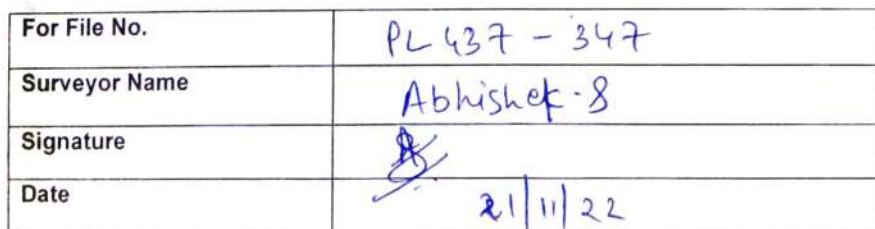 For File No. PL 437 - 347
Surveyor Name Abhishek . S
Signature
Date 21/11/22